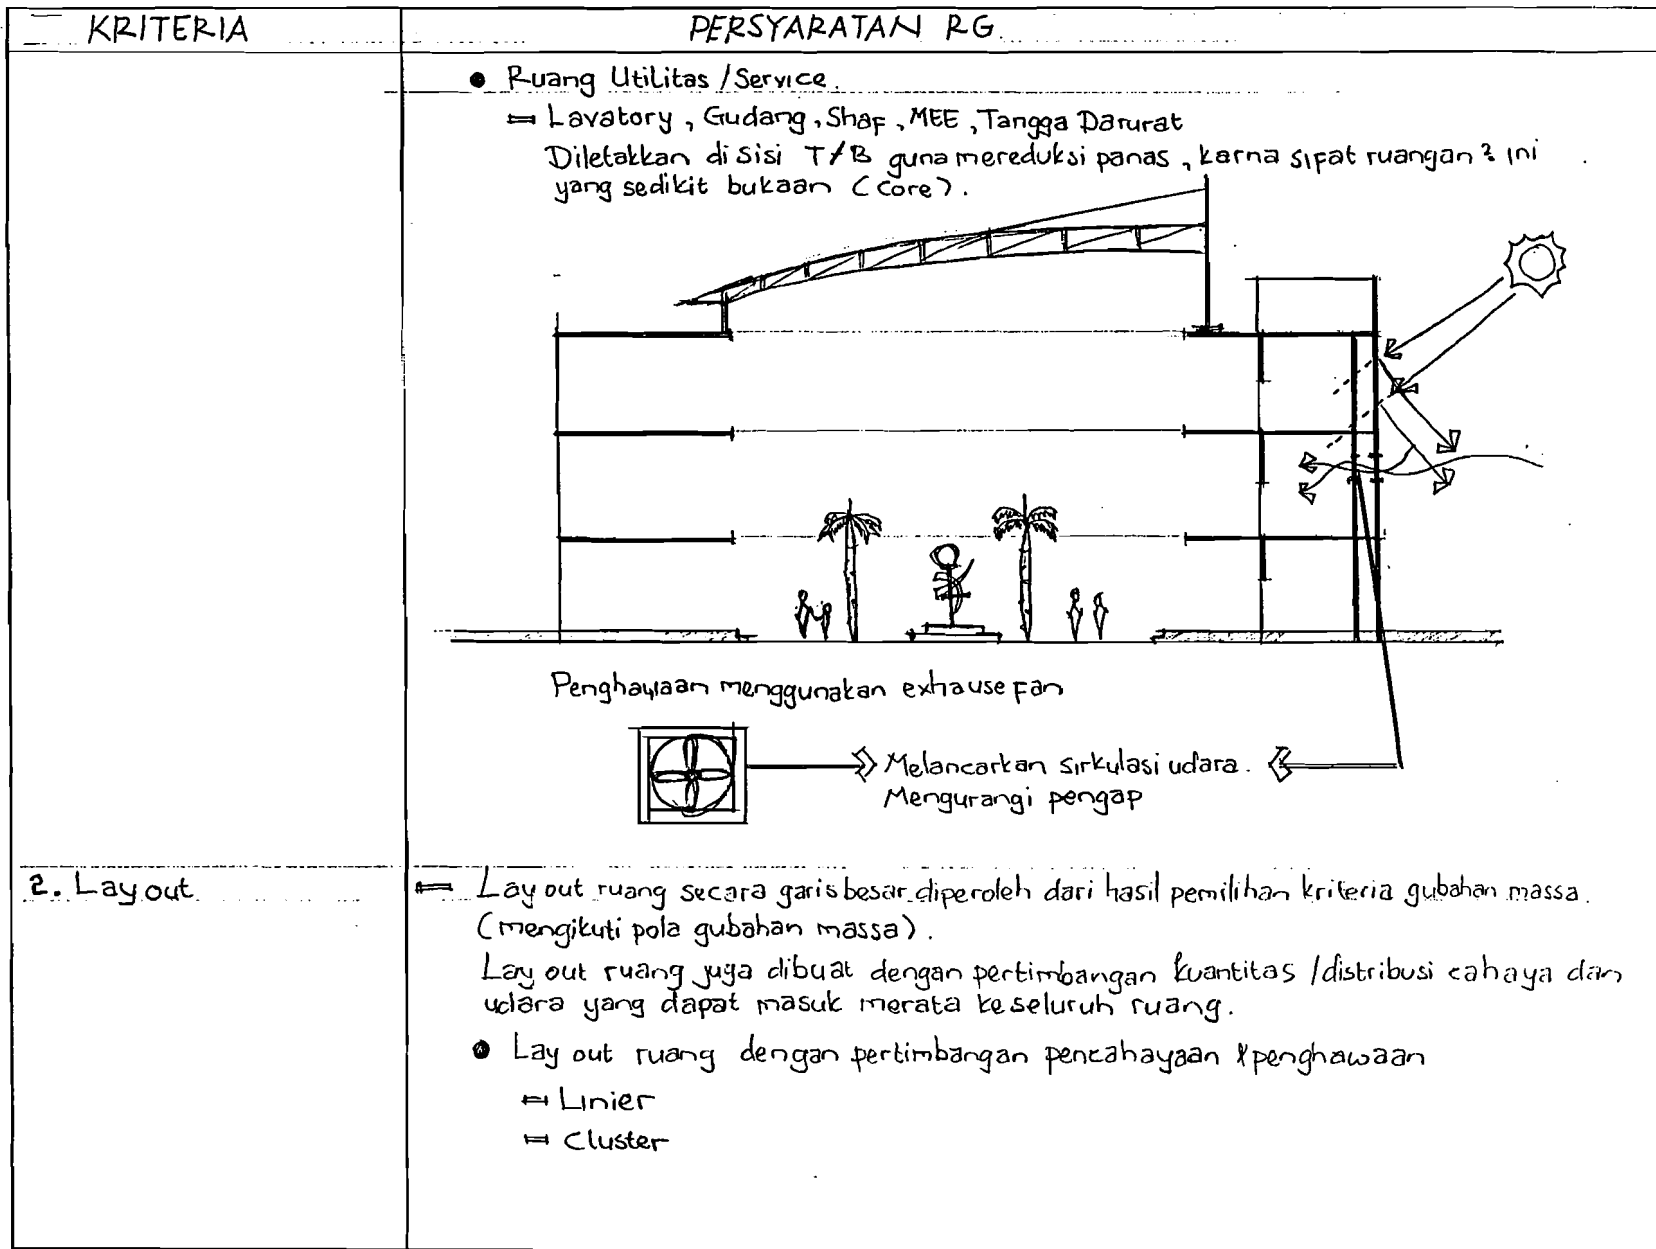 KRITERIA
PERSYARATAN RG
• Ruang Utilitas / Service.
Lavatory, Gudang, Shaf, MEE, Tangga Darurat
Diletakkan di sisi T/B guna mereduksi panas, karna sifat ruangan2 ini
yang sedikit bukaan (core).
Penghawaan menggunakan exhause fan
Melancarkan sirkulasi udara.
Mengurangi pengap
2. Lay out
Lay out ruang secara garis besar diperoleh dari hasil pemilihan kriteria gubahan massa.
(mengikuti pola gubahan massa).
Lay out ruang juga dibuat dengan pertimbangan kuantitas / distribusi cahaya dan
udara yang dapat masuk merata keseluruh ruang.
• Lay out ruang dengan pertimbangan pencahayaan & penghawaan
Linier
Cluster